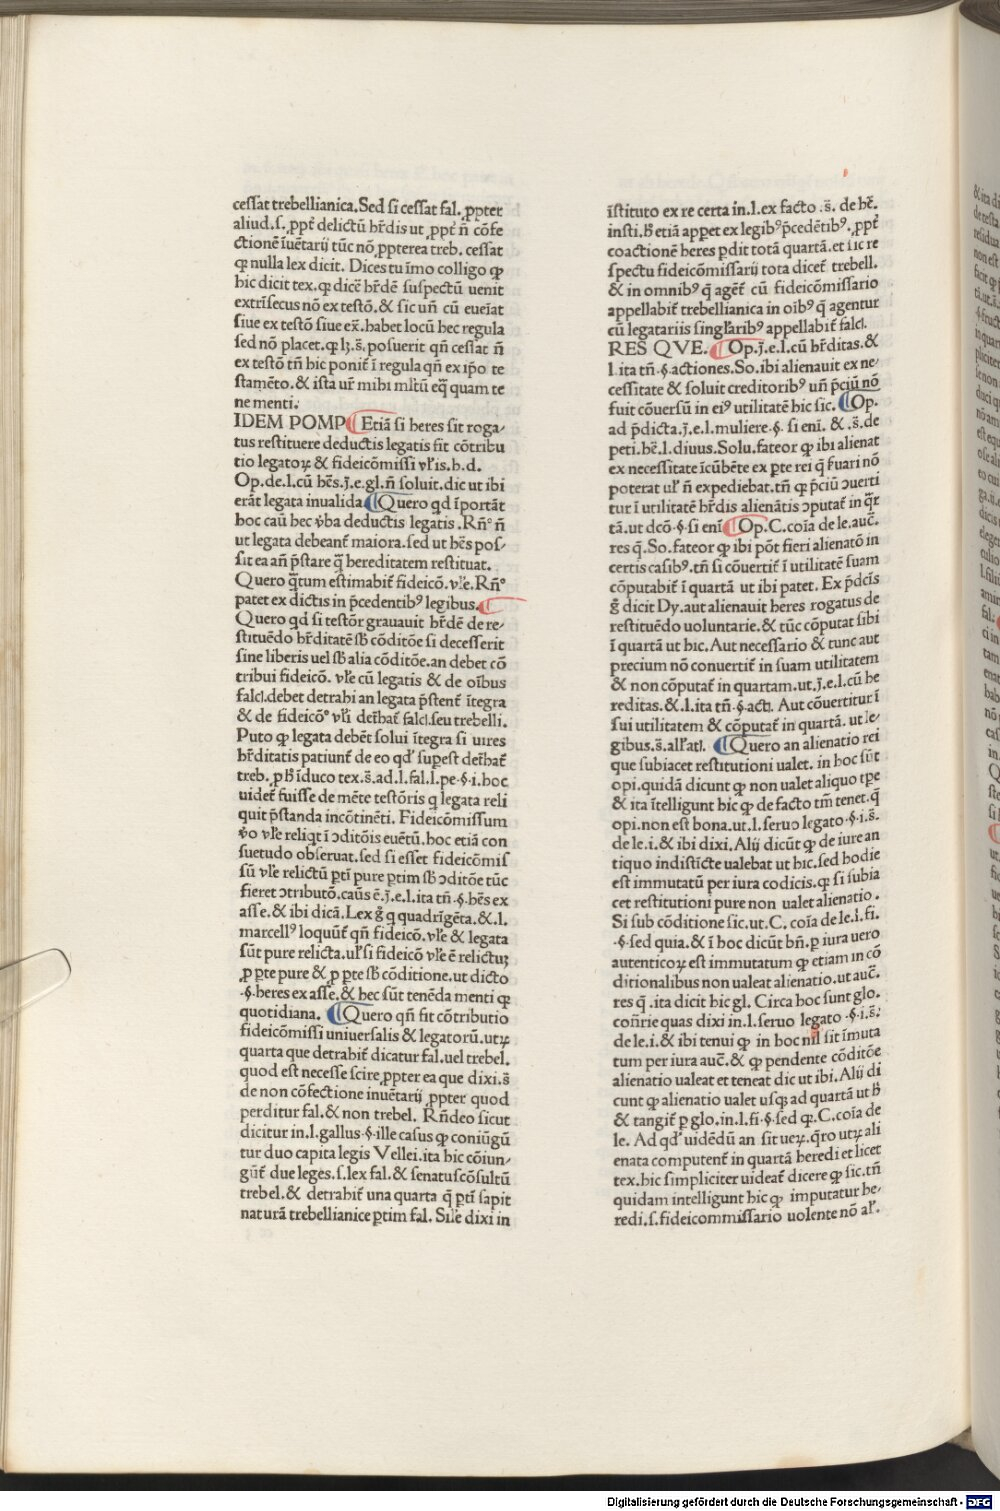 ceſſat trebellianica. Sed ſi ceſſat fal. ꝓpter
aliud .ſ. ꝓpt̃ delictũ hr̃dis ut ꝓpt̃ ñ cõfe
ctionẽ ĩuẽtarij tũc nõ ꝓpterea treb. ceſſat
ꝙ nulla lex dicit. Dices tu ĩmo colligo ꝙ
hic dicit tex. ꝙ dicẽ hr̃dẽ ſuſpectũ uenit
extrĩſecus nõ ex teſtõ. & ſic uñ cũ eueĩat
ſiue ex teſtõ ſiue ex̃. habet locũ hec regula
ſed nõ placet. ꝙ lꝫ .s̃. poſuerit qñ ceſſat ñ
ex teſtõ tñ hic ponit̃ ĩ regula qñ ex ip̃o te
ſtamẽto. & iſta ur̃ mihi ml̃tũ eq̃ quam te
ne menti.
IDEM POMP ¶ Etiã ſi heres ſit roga⸗
tus reſtituere deductis legatis ſit cõtribu
tio legatoꝝ & fideicõmiſſi vl̃is. h. d.
Op. de. l. cũ hẽs. j̃. e. gl. ñ ſoluit. dic ut ibi
erãt legata inualida ¶ Quero qd ĩportãt
hoc caũ hec v̾ba deductis legatis. Rñ° ñ
ut legata debeant̃ maiora. ſed ut hẽs poſ⸗
ſit ea añ p̃ſtare q̃ hereditatem reſtituat.
Quero q̃tum eſtimabit̃ fideicõ. vl̃e. Rñ°
patet ex dictis in p̃cedentibꝰ legibus. ¶
Quero qd ſi teſtõr grauauit hr̃dẽ de re⸗
ſtituẽdo hr̃ditatẽ ſƀ cõditõe ſi deceſſerit
ſine liberis uel ſƀ alia cõditõe. an debet cõ
tribui fideicõ. vl̃e cũ legatis & de oĩbus
falcl. debet detrahi an legata p̃ſtent̃ ĩtegra
& de fideicõ° vl̃i det̾hat̃ falcl. ſeu trebelli.
Puto ꝙ legata debẽt ſolui ĩtegra ſi uires
hr̃ditatis patiunt̃ de eo qd' ſupeſt det̾hat̃
treb. ꝓ hͦ ĩduco tex. s̃. ad. l. fal. l. pe. §. i. hoc
uidet̃ fuiſſe de mẽte teſtõris q legata reli
quit p̃ſtanda incõtinẽti. Fideicõmiſſum
v̾o vl̃e reliqt ĩ ↄditõis euẽtũ. hoc etiã con
ſuetudo obſeruat. ſed ſi eſſet fideicõmiſ
ſũ vl̃e relictũ ꝑtĩ pure ꝑtim ſƀ ↄditõe tũc
fieret ↄtributõ. caũs ẽ. j̃. e. l. ita tñ. §. hẽs ex
aſſe. & ibi dicã. Lex g̾ q quadrĩgẽta. & .l.
marcellꝰ loquũt̃ qñ fideicõ. vl̃e & legata
ſũt pure relicta. ul̃ ſi fideicõ vl̃e ẽ relictuꝫ
ꝓ ꝑte pure & ꝓ ꝑte ſƀ cõditione. ut dicto
.§. heres ex aſſe. & hec ſũt tenẽda menti ꝙ
quotidiana. ¶ Quero qñ fit cõtributio
fideicõmiſſi uniuerſalis & legatorũ. utꝝ
quarta que detrahit̃ dicatur fal. uel trebel.
quod eſt neceſſe ſcire ꝓpter ea que dixi. s̃
de non cõfectione inuẽtarij ꝓpter quod
perditur fal. & non trebel. Rñdeo ſicut
dicitur in. l. gallus. §. ille caſus ꝙ coniũgũ
tur duo capita legis Vellei. ita hic cõiun⸗
gũt̃ due leges .ſ. lex fal. & ſenatuſcõſultũ
trebel. & detrahit̃ una quarta q̃ ꝑtĩ ſapit
naturã trebellianice ꝑtim fal. Sil̃e dixi in
ĩſtituto ex re certa in. l. ex facto .s̃. de hẽ.
inſti. hͦ etiã appet ex legibꝰ p̃cedẽtibꝰ. ꝓpt̃
coactionẽ heres ꝑdit totã quartã. et ſic re
ſpectu fideicõmiſſarij tota dicet̃ trebell.
& in omnibꝰ q̃ aget̃ cũ fideicõmiſſario
appellabit̃ trebellianica in oĩbꝰ q̃ agentur
cũ legatariis ſingl̃aribꝰ appellabit̃ falcl.
RES QVE. ¶ Op. j̃. e. l. cũ hr̃ditas. &
l. ita tñ. §. actiones. So. ibi alienauit ex ne⸗
ceſſitate & ſoluit creditoribꝰ uñ p̃ciũ nõ
fuit cõuerſũ in eiꝰ utilitatẽ hic ſic. ¶ Op.
ad p̃dicta. j̃. e. l. muliere. §. ſi eni. & .s̃. de
peti. hẽ. l. diuus. Solu. fateor ꝙ ibi alienat
ex neceſſitate ĩcũbẽte ex ꝑte rei q̃ ſ̾uari nõ
poterat ul̃ ñ expediebat. tñ ꝙ p̃ciũ ↄuerti
tur ĩ utilitatẽ hr̃dis alienãtis ↄputat̃ in q̃r
tã. ut dcõ. §. ſi eni ¶ Op. C. coĩa de le. auc̃.
res q̃. So. fateor ꝙ ibi põt fieri alienatõ in
certis caſibꝰ. tñ ſi cõuertit̃ ĩ utilitatẽ ſuam
cõputabit̃ ĩ quartã ut ibi patet. Ex p̃dcĩs
g̾ dicit Dy. aut alienauit heres rogatus de
reſtituẽdo uoluntarie. & tũc cõputat ſibi
ĩ quartã ut hic. Aut neceſſario & tunc aut
precium nõ conuertit̃ in ſuam utilitatem
& non cõputat̃ in quartam. ut. j̃. e. l. cũ he
reditas. & .l. ita tñ. §. actĩ. Aut cõuertitur ĩ
ſui utilitatem & cõputat̃ in quartã. ut le⸗
gibus. s̃. all̃atĩ. ¶ Quero an alienatio rei
que ſubiacet reſtitutioni ualet. in hoc ſũt
opi. quidã dicunt ꝙ non ualet aliquo tꝑe
& ita ĩtelligunt hic ꝙ de facto tm̃ tenet. q̃
opi. non eſt bona. ut. l. ſeruo legato. §. i. s̃.
de le. i. & ibi dixi. Alij dicũt ꝙ de iure an
tiquo indiſtĩcte ualebat ut hic. ſed hodie
eſt immutatũ per iura codicis. ꝙ ſi ſubia
cet reſtitutioni pure non ualet alienatio.
Si ſub cõditione ſic. ut. C. coĩa de le. l. fi.
.§. ſed quia. & ĩ hoc dicũt bñ. ꝑ iura uero
autenticoꝝ eſt immutatum ꝙ etiam in cõ
ditionalibus non ualeat alienatio. ut auc̃.
res q̃. ita dicit hic gl. Circa hoc ſunt glo.
coñrie quas dixi in. l. ſeruo legato. §. i. s̃.
de le. i. & ibi tenui ꝙ in hoc nil ſit ĩmuta
tum per iura auc̃. & ꝙ pendente cõditõe
alienatio ualeat et teneat dic ut ibi. Alij di
cunt ꝙ alienatio ualet uſqꝫ ad quartã ut hͦ
& tangit̃ ꝑ glo. in. l. fi. §. ſed qꝛ. C. coĩa de
le. Ad qd' uidẽdũ an ſit ueꝝ. q̃ro utꝝ ali
enata computent̃ in quartã heredi et licet
tex. hic ſimpliciter uideat̃ dicere ꝙ ſic. tñ
quidam intelligunt hic ꝙ imputatur he⸗
redi .ſ. fideicommiſſario uolente nõ al̃.
Digitalisierung gefördert durch die Deutsche Forschungsgemeinschaft - DFG